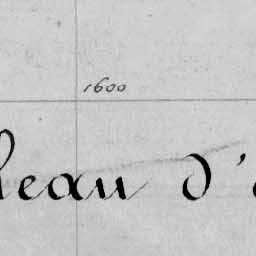 1600
leau d'